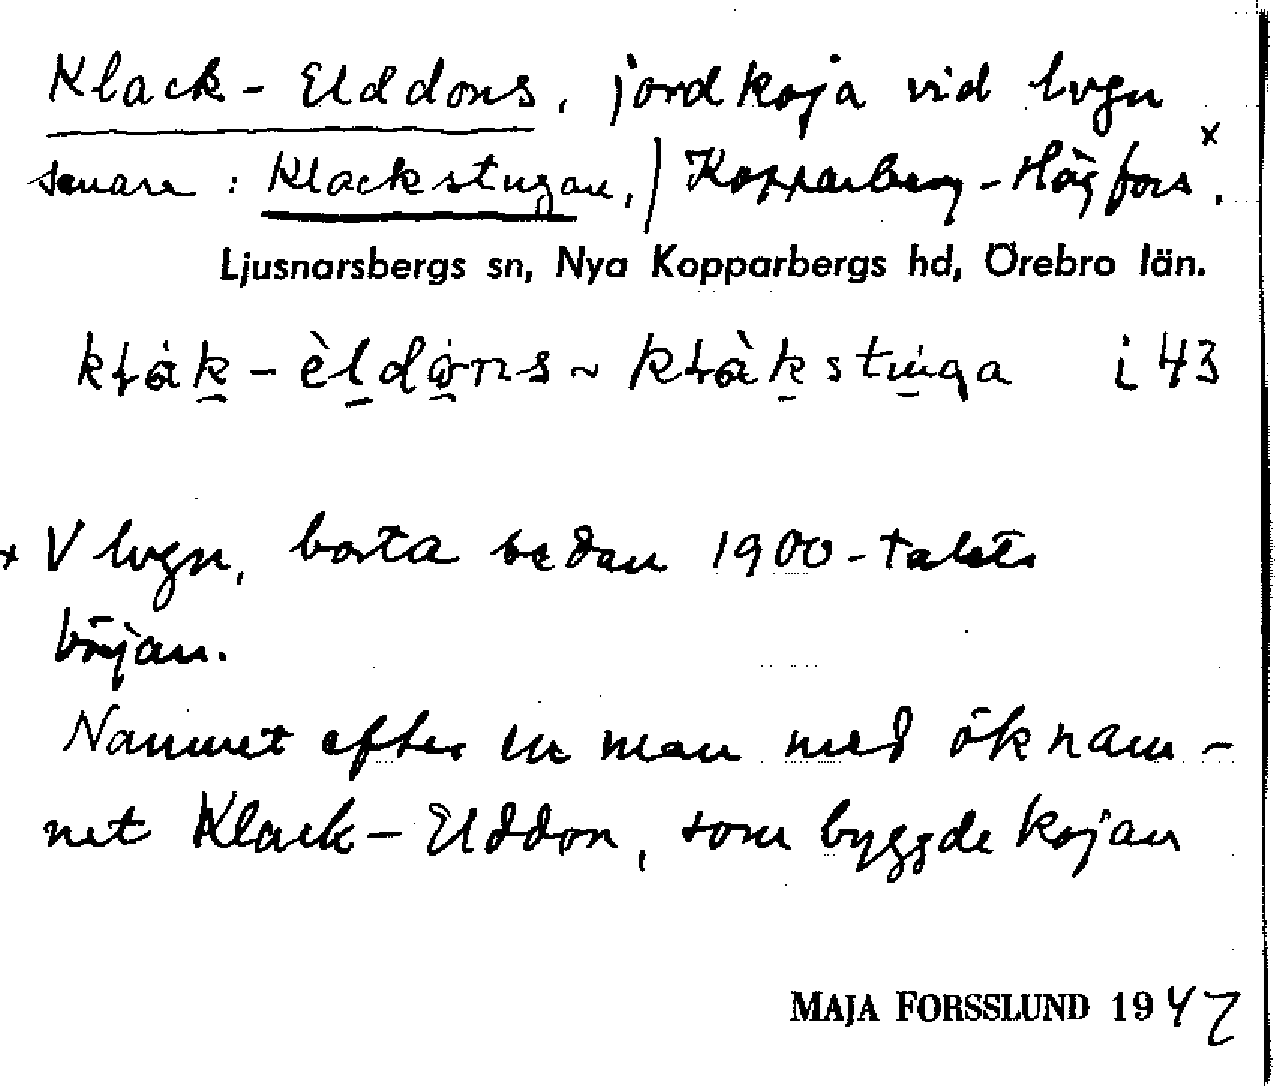 Klack-Elddons, jordkoja vid lvgn
senare: Klackstugan,/ Kopparberg-Högfors x.
Ljusnarsbergs sn, Nya Kopparbergs hd, Örebro län.
i 43
x V lvgn, borta sedan 1900-talets
början.
Namnet efter en man med öknam-
net Klack-Elddon, som byggde kojan
MAJA FORSSLUND 1947